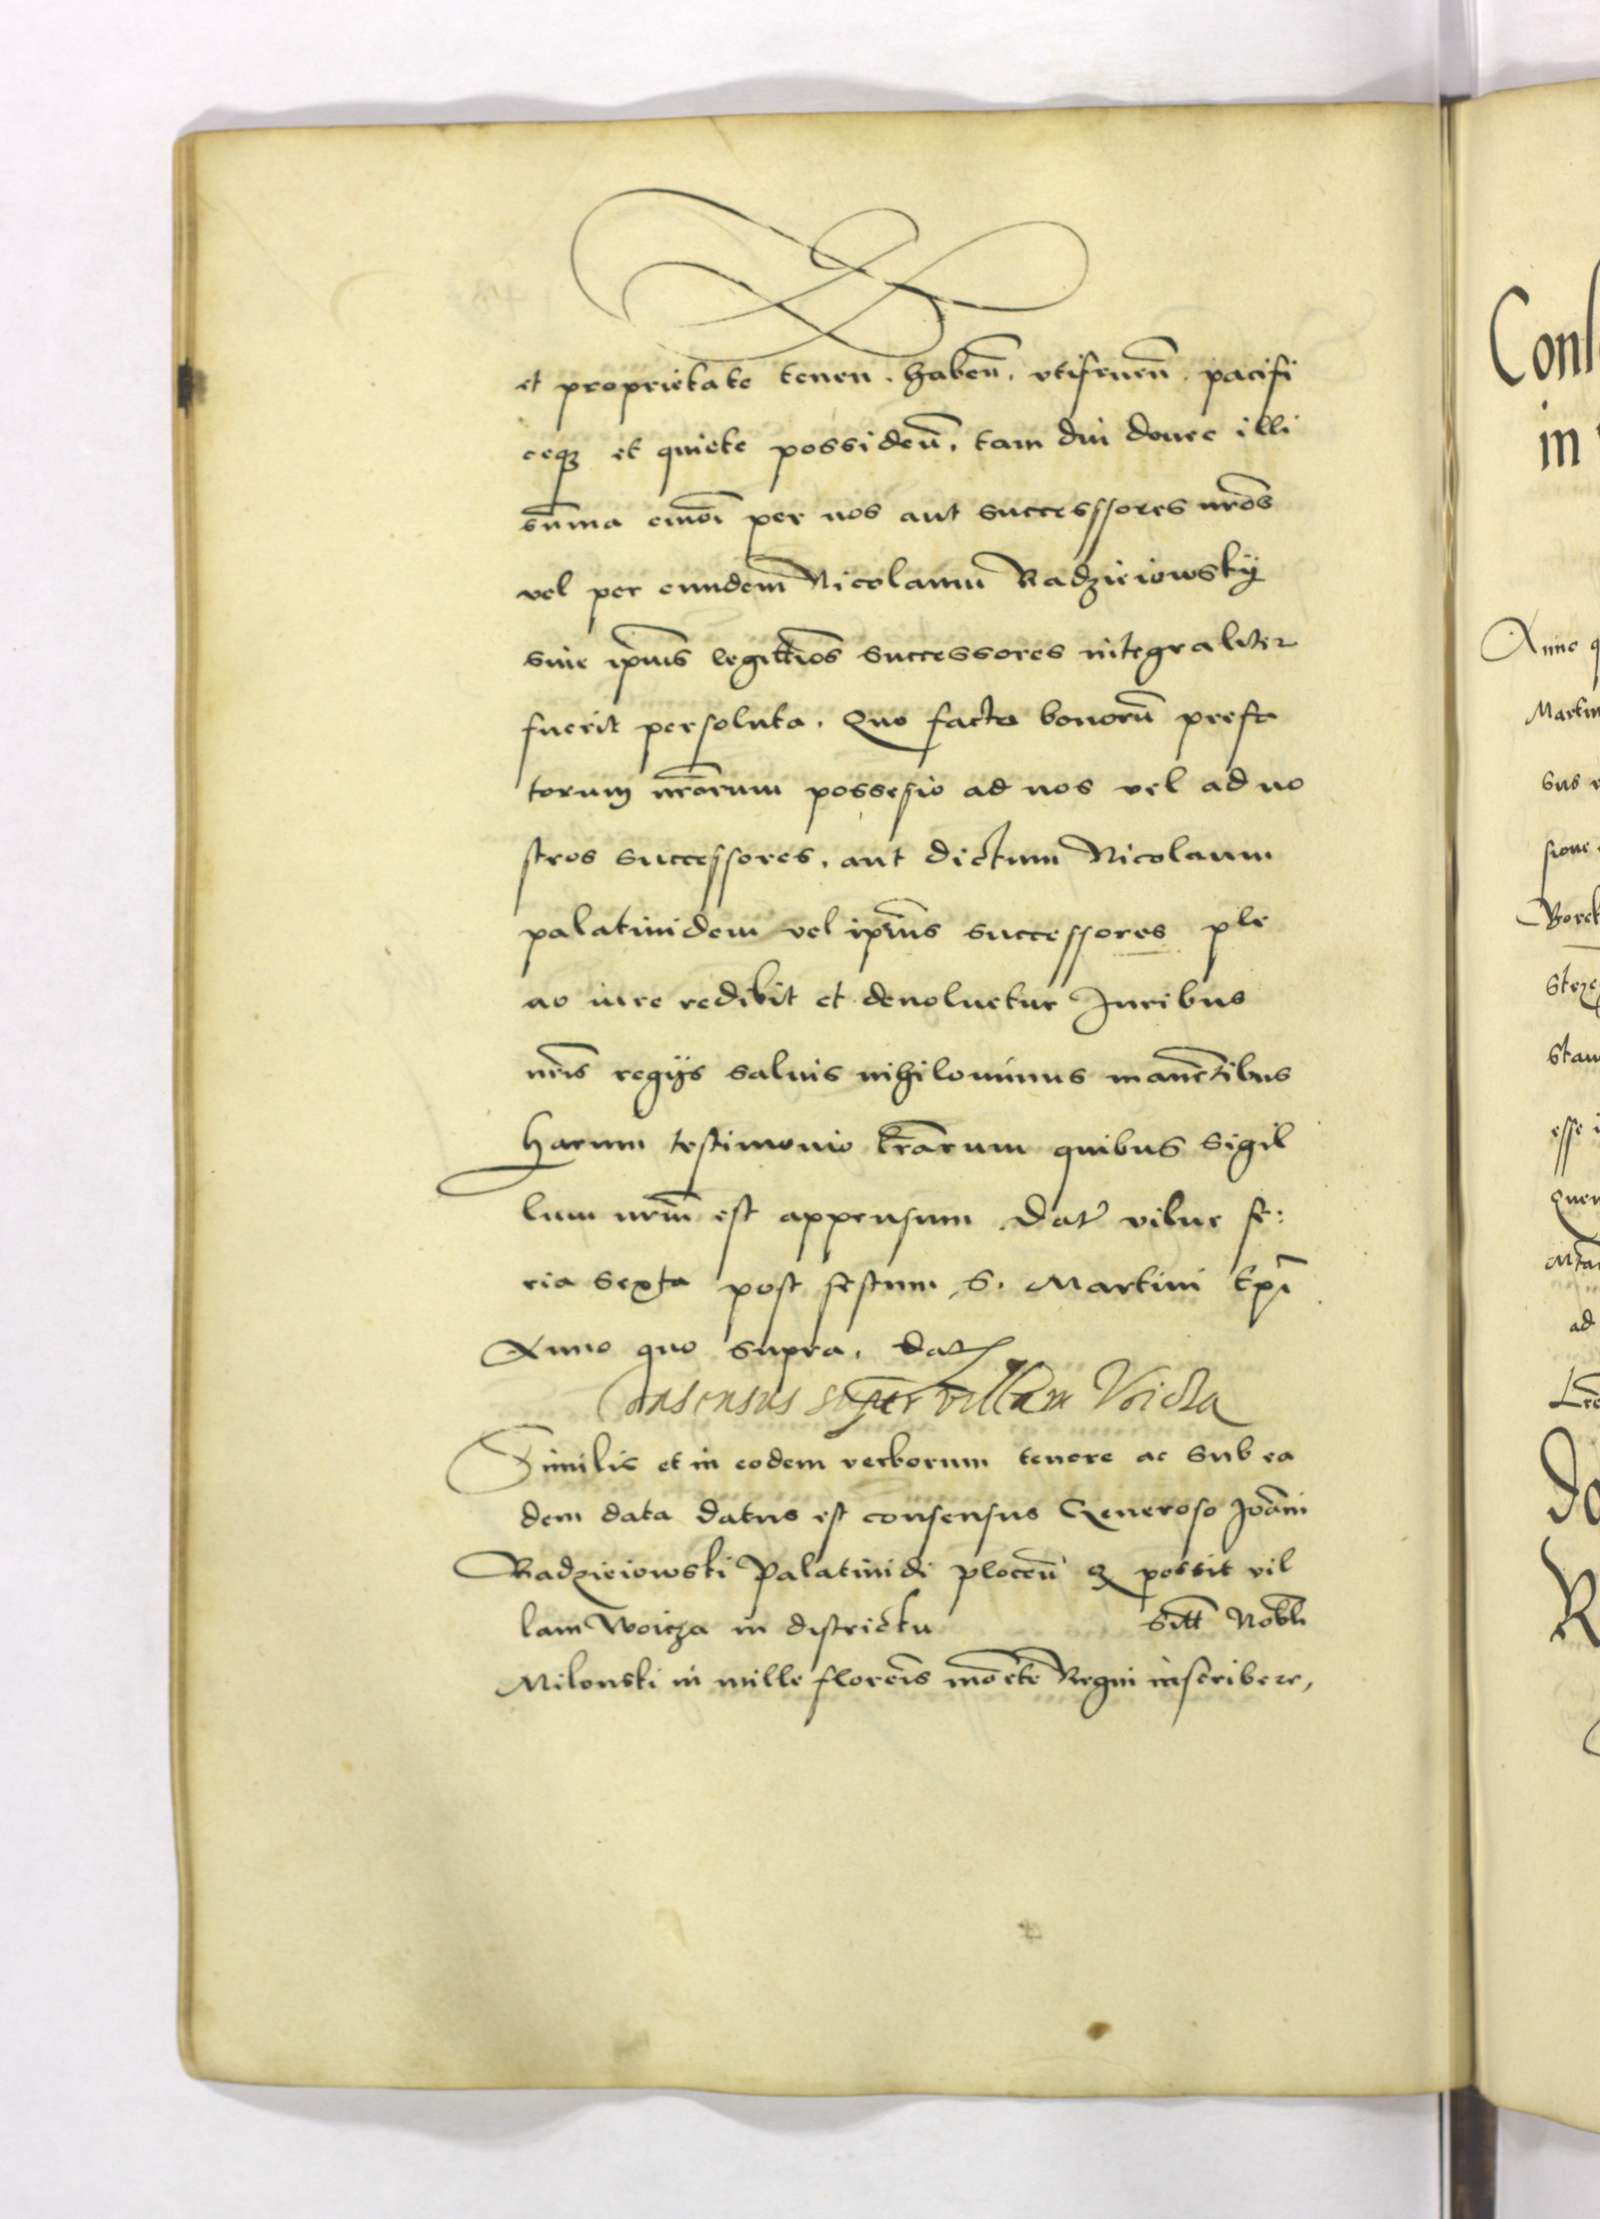 et proprietate tenen. habeñ. vtifrueñ. pacifi
ceq; et quiete possideñ. tam diu donec illi
sūma eiuōi per nos aut successsores nr̄os
vel per eundem Nicolaum Radzieiowskÿ
siue ip̄ius legittīos successores integraliter
fuerit persoluta. Quo facto bonorū prefa
torum nr̄orum possesio ad nos vel ad no
stros successores, aut dictum Nicolaum
palatinidem vel ip̄ius successores ple
no iure redibit et deuoluetur Juribus
nr̄is regijs saluis nihilominus manētibus
harum testimonio lr̄arum quibus sigil
lum nrm̄ est appensum. Dat vilne fe:
ria sexta post festum S. Martini Ep̄i
Anno quo supra. dat
Consensus super villam Voicza
Similis et in eodem verborum tenore ac sub ea
dem data datus est consensus Generoso Joāni
Radzieiowski Palatinidi ploceñ q possit vil
lam Woicza in districtu sitt Nobli
Milonski in mille floreīs mōete Regni inscribere,
Cons
in
Anno q
Martin
sus
sione
Borek
Steze
Stani
esse i
Quem
ad
Do
R